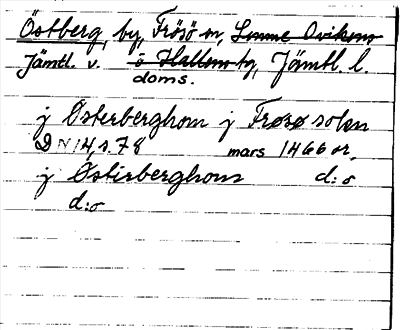 Östberg, by, Frösö sn, Sunne Ovikens
Jämtl. v. o Hallens tg, Jämtl. l.
doms.
j Østerberghom j Frøsø sokn
DN 14, s. 78 mars 1466 or.
j Østirberghom d:o
d:o